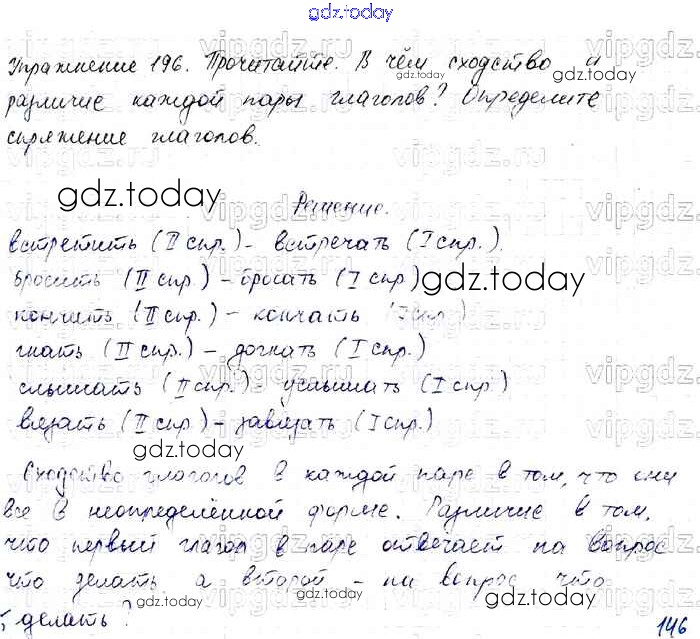 gdz.today
Упражнение 196. Прочитайте. В чём сходство и
различие каждой пары глаголов? Определите
спряжение глаголов.
gdz.today
Решение.
встретить (II спр.) - встречать (I спр.)
бросить (II спр.) - бросать (I спр)
gdz.today
кончить (II спр.) - кончать (I спр.)
гнать (II спр.) - догнать (I спр.)
слышать (II спр.) - услышать (I спр)
вязать (II спр) - завязать (I спр.)
gdz.today
Сходство глаголов в каждой паре в том, что они
все в неопределённой форме. Различие в том,
что первый глагол в паре отвечает на вопрос
что делать а второй - на вопрос что
делать?
gdz.today
146
vipgdz.ru